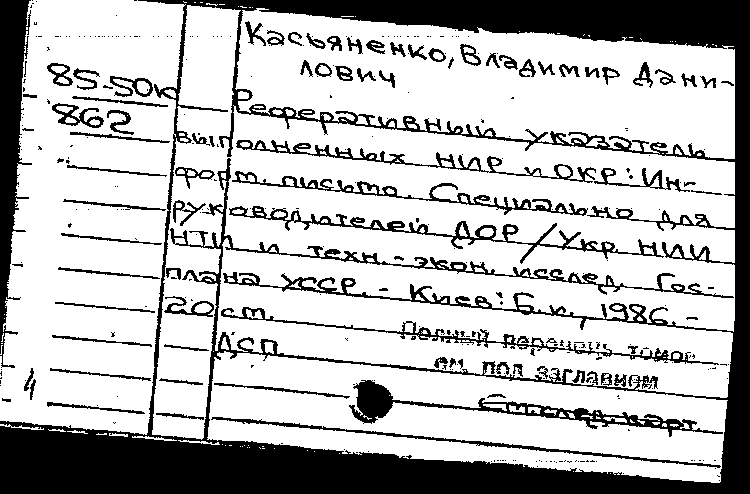 Касьяненко, Владимир Дани-
лович
85-50к
862
Реферативный указатель
выполненных НИР и ОКР: Ин-
форм. письмо. Специально для
руководителей ДОР / Укр. НИИ
НТИ и техн.-экон. исслед. Гос-
плана УССР. - Киев: Б.и., 1986. -
20 ст.
ДСП
Полный перечень томов
см. под заглавием
См. след. карт.
4